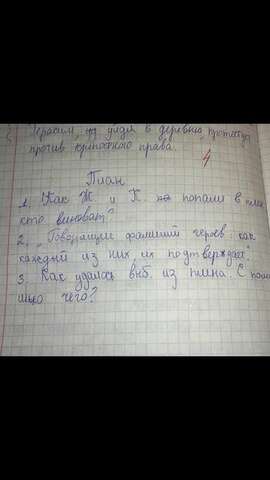 Герасим, уйдя в деревню, протестуя
против крепостного права.
4
План
1. "Как Ж и К попали в плен
кто виноват"
2. "Говорящие фамилии героев: как
каждый из них их подтверждает".
3. Как удалось выб. из плена. С пом
ощью чего?